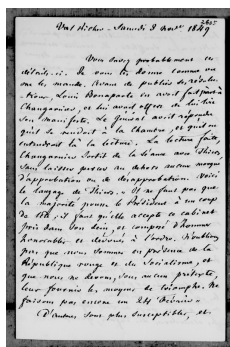 2605
Val Richer - Samedi 3 Nov. 1849
Vous savez probablement ces
détails-ci. Je vous les donne comme on
me les mande. Avant de publier ses résolu-
-tions, Louis Bonaparte en avait fait part à
Changarnier, et lui avait offert de lui lire
son manifeste. Le Général avait répondu
qu'il se rendait à la Chambre, et qu'il en
entendrait là la lecture. La lecture faite,
Changarnier sortit de la séance avec Thiers,
sans laisser percer au dehors aucune marque
d'approbation ou de désapprobation. Voici
le langage de Thiers. " Il ne faut pas que
la majorité pousse le Président à un coup
de tête ; il faut qu'elle accepte ce cabinet
pris dans son sein, et composé d'hommes
honorables et dévoués à l'ordre. N'oublions
pas que nous sommes en présence de la
République rouge et du Socialisme, et
que nous ne devons, sous aucun prétexte,
leur fournir les moyens de triompher. Ne
faisons pas encore un 24 Février "
D'autres sont plus susceptibles, et